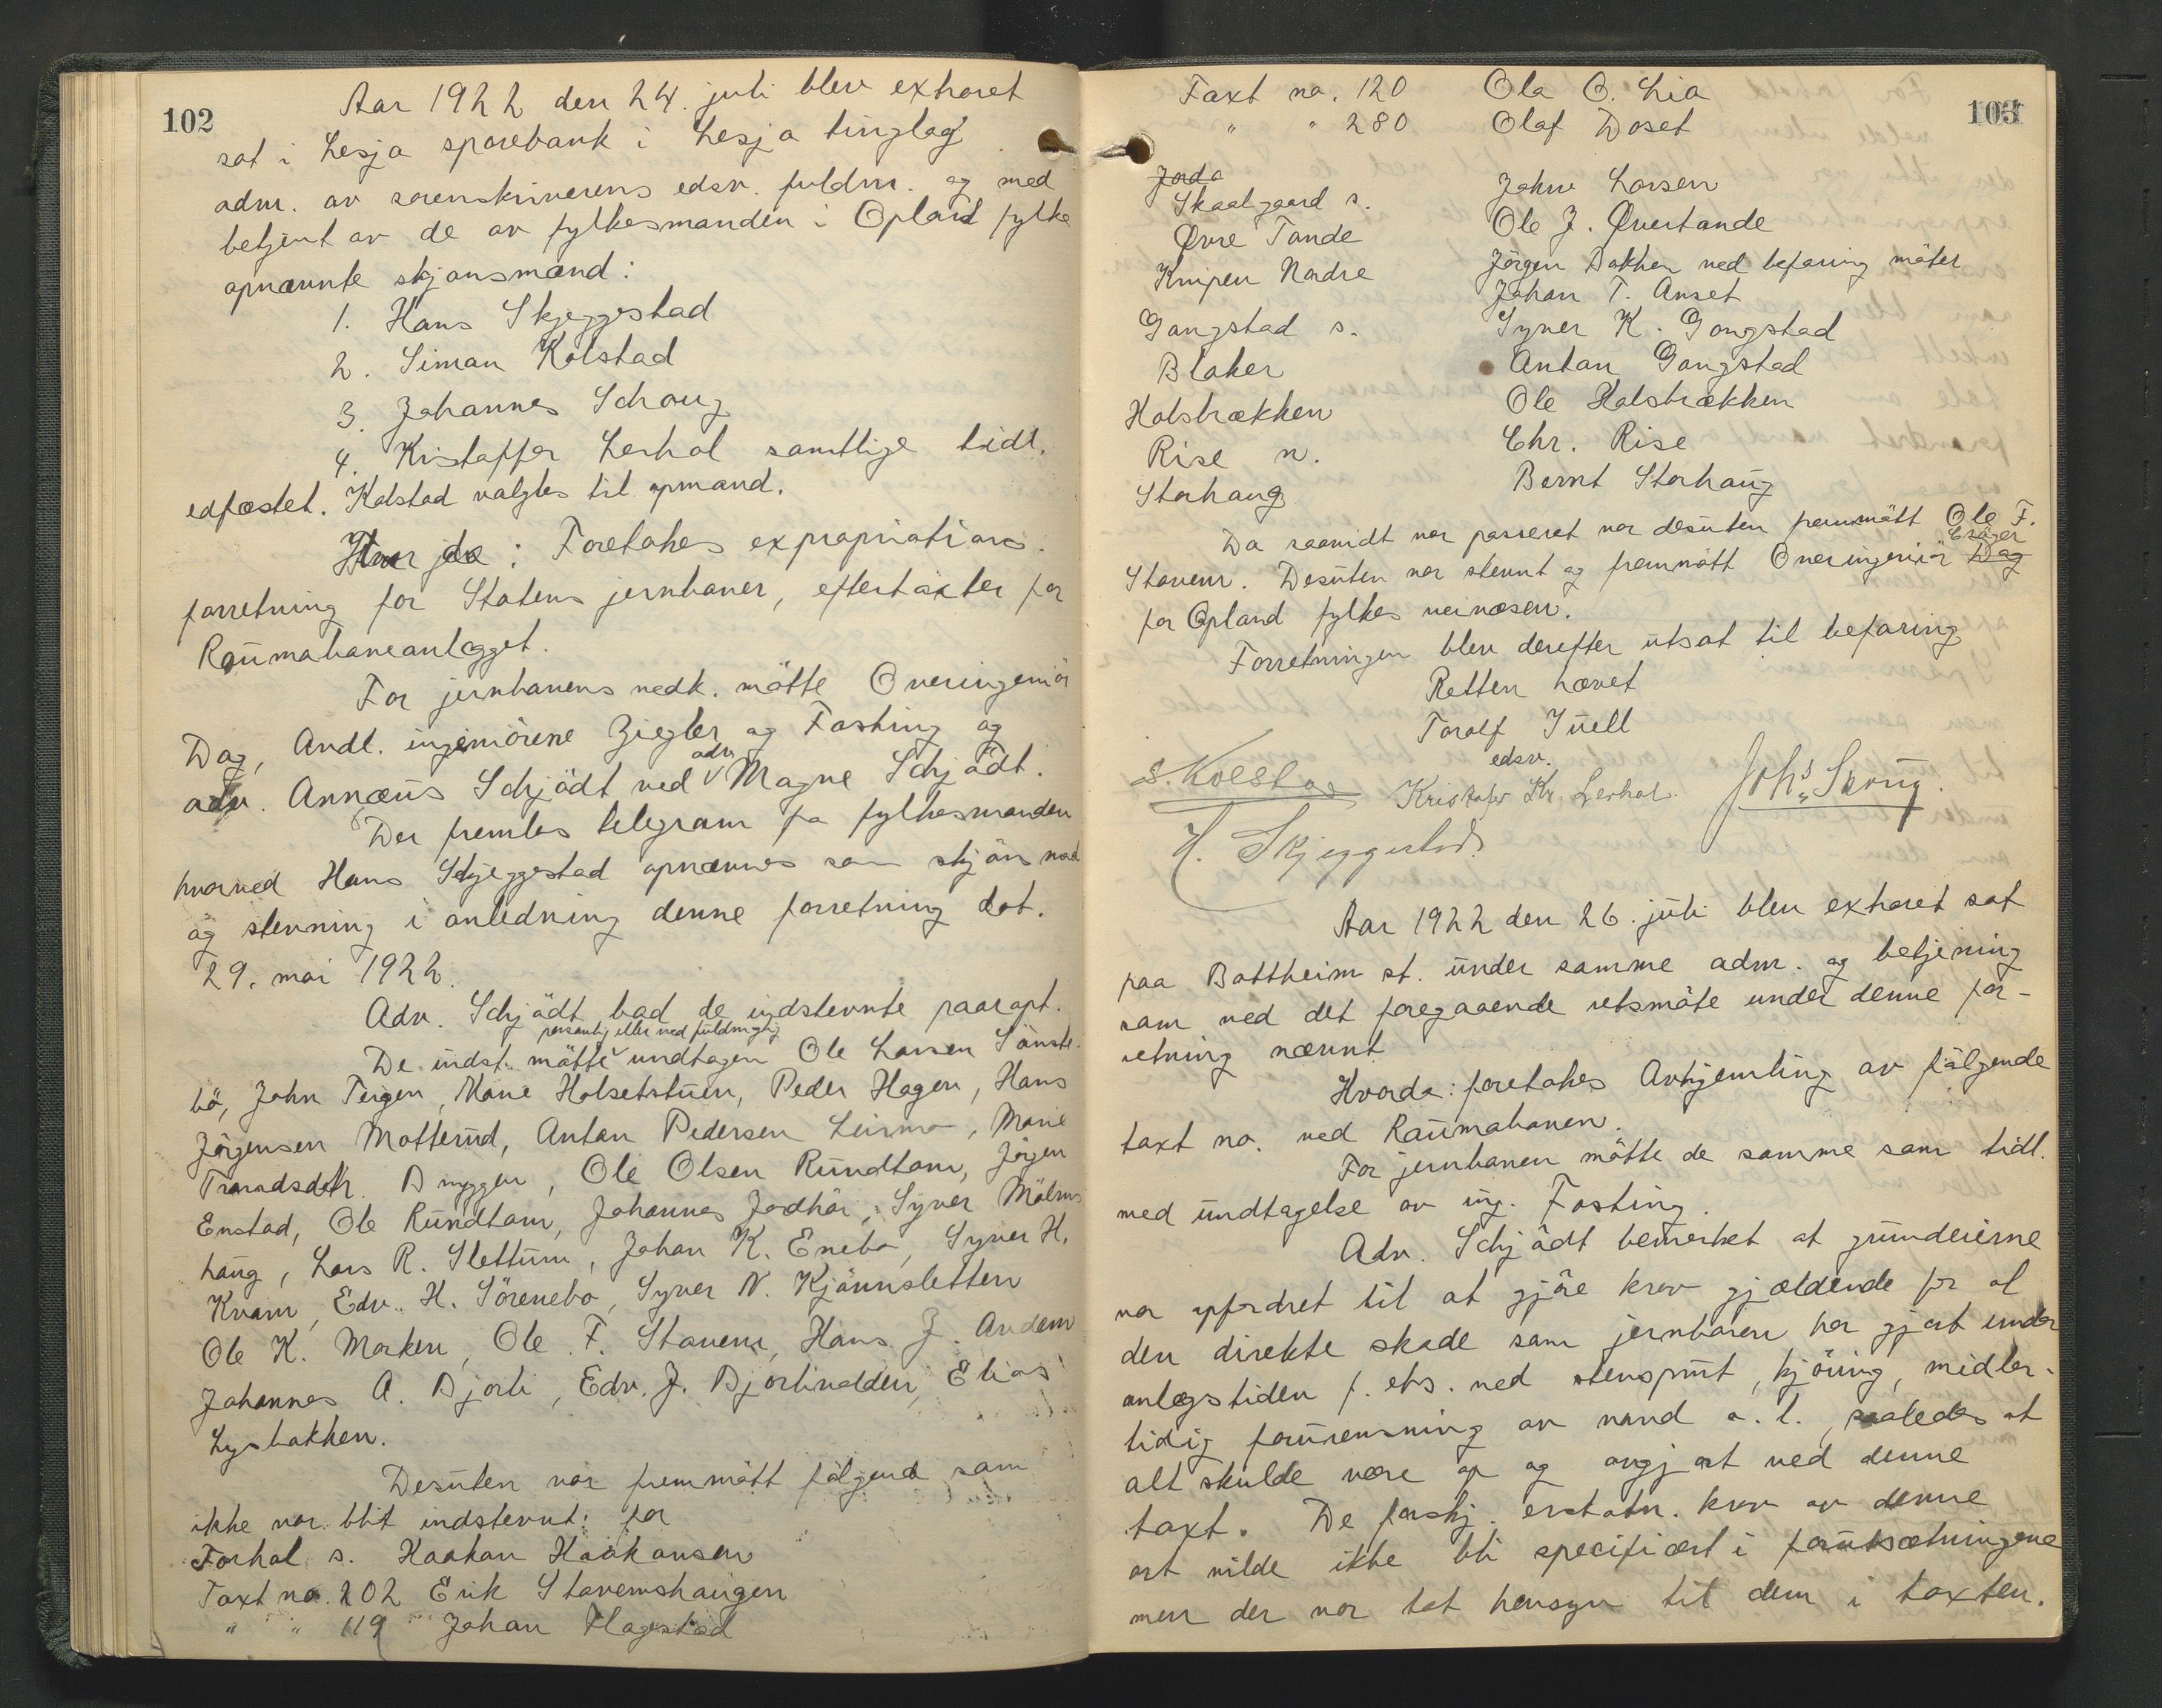 102
Aar 1922 den 24. juli blev extraret
sat i Lesja sparebank i Lesja tinglag
adm. av sorenskriverens edsv. fuldm. og med
betjent av de av fylkesmanden i Opland fylke
opnævnte skjønsmænd:
1. Hans Skjeggestad
2. Simon Kolstad
3. Johannes Schoug
4. Kristoffer Lerhol samtlige tidl.
edfæstet. Kolstad valgtes til opmand.
Hvor da: Foretokes expropriations-
forretning for Statens jernbaner, eftertaxter for
Raumabaneanlægget.
For jernbanens vedk. mötte Overingeniör
Dag, Avdl. ingeniörene Ziegler og Fasting og
adv. Annæus Schjödt ved adv. Magne Schjödt.
Der fremlas telegram fra fylkesmanden
hvorved Hans Skjeggestad opnævnes som skjönsmand
og stevning i anledning denne forretning dat.
29. mai 1922.
Adv. Schjödt bad de indstevnte paaropt.
personlig eller ved fuldmægtig
De indst. mötte undtagen Ole Larsen Sönste-
bö, John Teigen, Marie Holsetstuen, Peder Hagen, Hans
Jörgensen Motterud, Anton Pedersen Leirmo, Marie
Trondsdtr. Bryggen, Ole Olsen Rundtom, Jörgen
Enstad, Ole Rundtom, Johannes Jordhöi, Syver Mölms-
haug, Lars R. Slettum, Johan K. Enebo, Syver H.
Kvam, Edv. H. Sörenebo, Syver N. Kjönnsletten
Ole K. Morken, Ole F. Stavem, Hans J. Andem
Johannes A. Bjorli, Edv. J. Bjorlivolden, Elias
Lysbakken.
Desuten var fremmött fölgende som
ikke var blit indstevnt: for
Forhol s. Haakon Haakonsen
Taxt no. 202 Erik Stavemshaugen
" " 119 Johan Flagestad
103
Taxt no. 120 Ola O. Lia
" " 280 Olaf Doset
Jorda
Skaalgaard s. John Larsen
Øvre Tande Ole J. Øvertande
Knipen Nordre Jörgen Bakken ved befaring möter
Johan T. Anset
Gangstad s. Syver K. Gangstad
Blaker Anton Gangstad
Holsbrækken Ole Holsbrækken
Rise n. Chr. Rise
Storhaug Bernt Storhaug
Da saavidt var passeret var desuten fremmött Ole F.
Stavem. Desuten var stevnt og fremmött Overingeniör Dag
for Opland fylkes veivæsen.
Forretningen blev derefter utsat til befaring
Retten hævet
Toralf Juell
edsv.
S. Kolstad Kristofer Kr. Lerhol. Johs. Skoug.
H. Skjeggestad.
Aar 1922 den 26. juli blev extraret sat
paa Bottheim st. under samme adm. og betjening
som ved det foregaaende retsmöte under denne for-
retning nævnt
Hvorda: foretokes Avhjemling av fölgende
taxt no. ved Raumabanen.
For jernbanen mötte de samme som tidl.
med undtagelse av ing. Fasting.
Adv. Schjödt bemerket at grundeierne
var opfordret til at gjöre krav gjældende for al
den direkte skade som jernbanen har gjort under
anlægstiden f. eks. ved stensprut, kjöring, midler-
tidig forurensning av vand o. l., saaledes at
alt skulde være op og avgjort ved denne
taxt. De forskj. erstatn. krav av denne
art vilde ikke bli specificert i forutsætningene
men der var tat hensyn til dem i taxten.